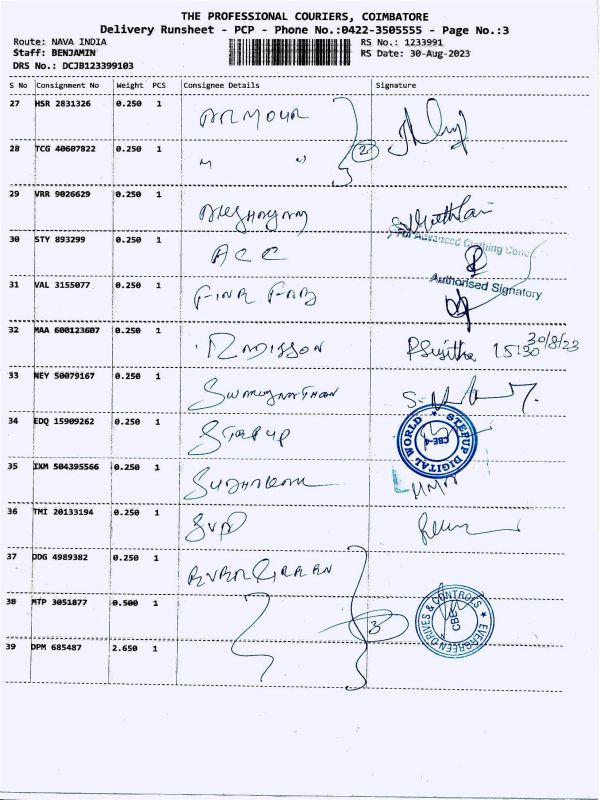 THE PROFESSIONAL COURIERS, COIMBATORE
Delivery Runsheet - PCP - Phone No.:0422-3505555 - Page No.:3
Route: NAVA INDIA RS No.: 1233991
Staff: BENJAMIN RS Date: 30-Aug-2023
DRS No.: DCJB123399103
S No Consignment No Weight PCS Consignee Details Signature
27 HSR 2831326 0.250 1 ARMOUR
28 TCG 40607822 0.250 1 " " 2
29 VRR 9026629 0.250 1
For Advanced Clothing
30 STY 893299 0.250 1 ACC
Authorised Signatory
31 VAL 3155077 0.250 1 FINE FAB
32 MAA 600123607 0.250 1 RADISSON P Sujitha 15:30 30/8/23
33 NEY 50079167 0.250 1 Swaminathan
34 EDQ 15909262 0.250 1 STEP UP
STEPUP DIGITAL WORLD CBE-4
35 IXM 504395566 0.250 1 Sudhakar
36 TMI 20133194 0.250 1 SVP
37 DDG 4989382 0.250 1 EVERGREEN
38 MTP 3051877 0.500 1 3
EVERGREEN DRIVES & CONTROLS CBE
39 DPM 685487 2.650 1